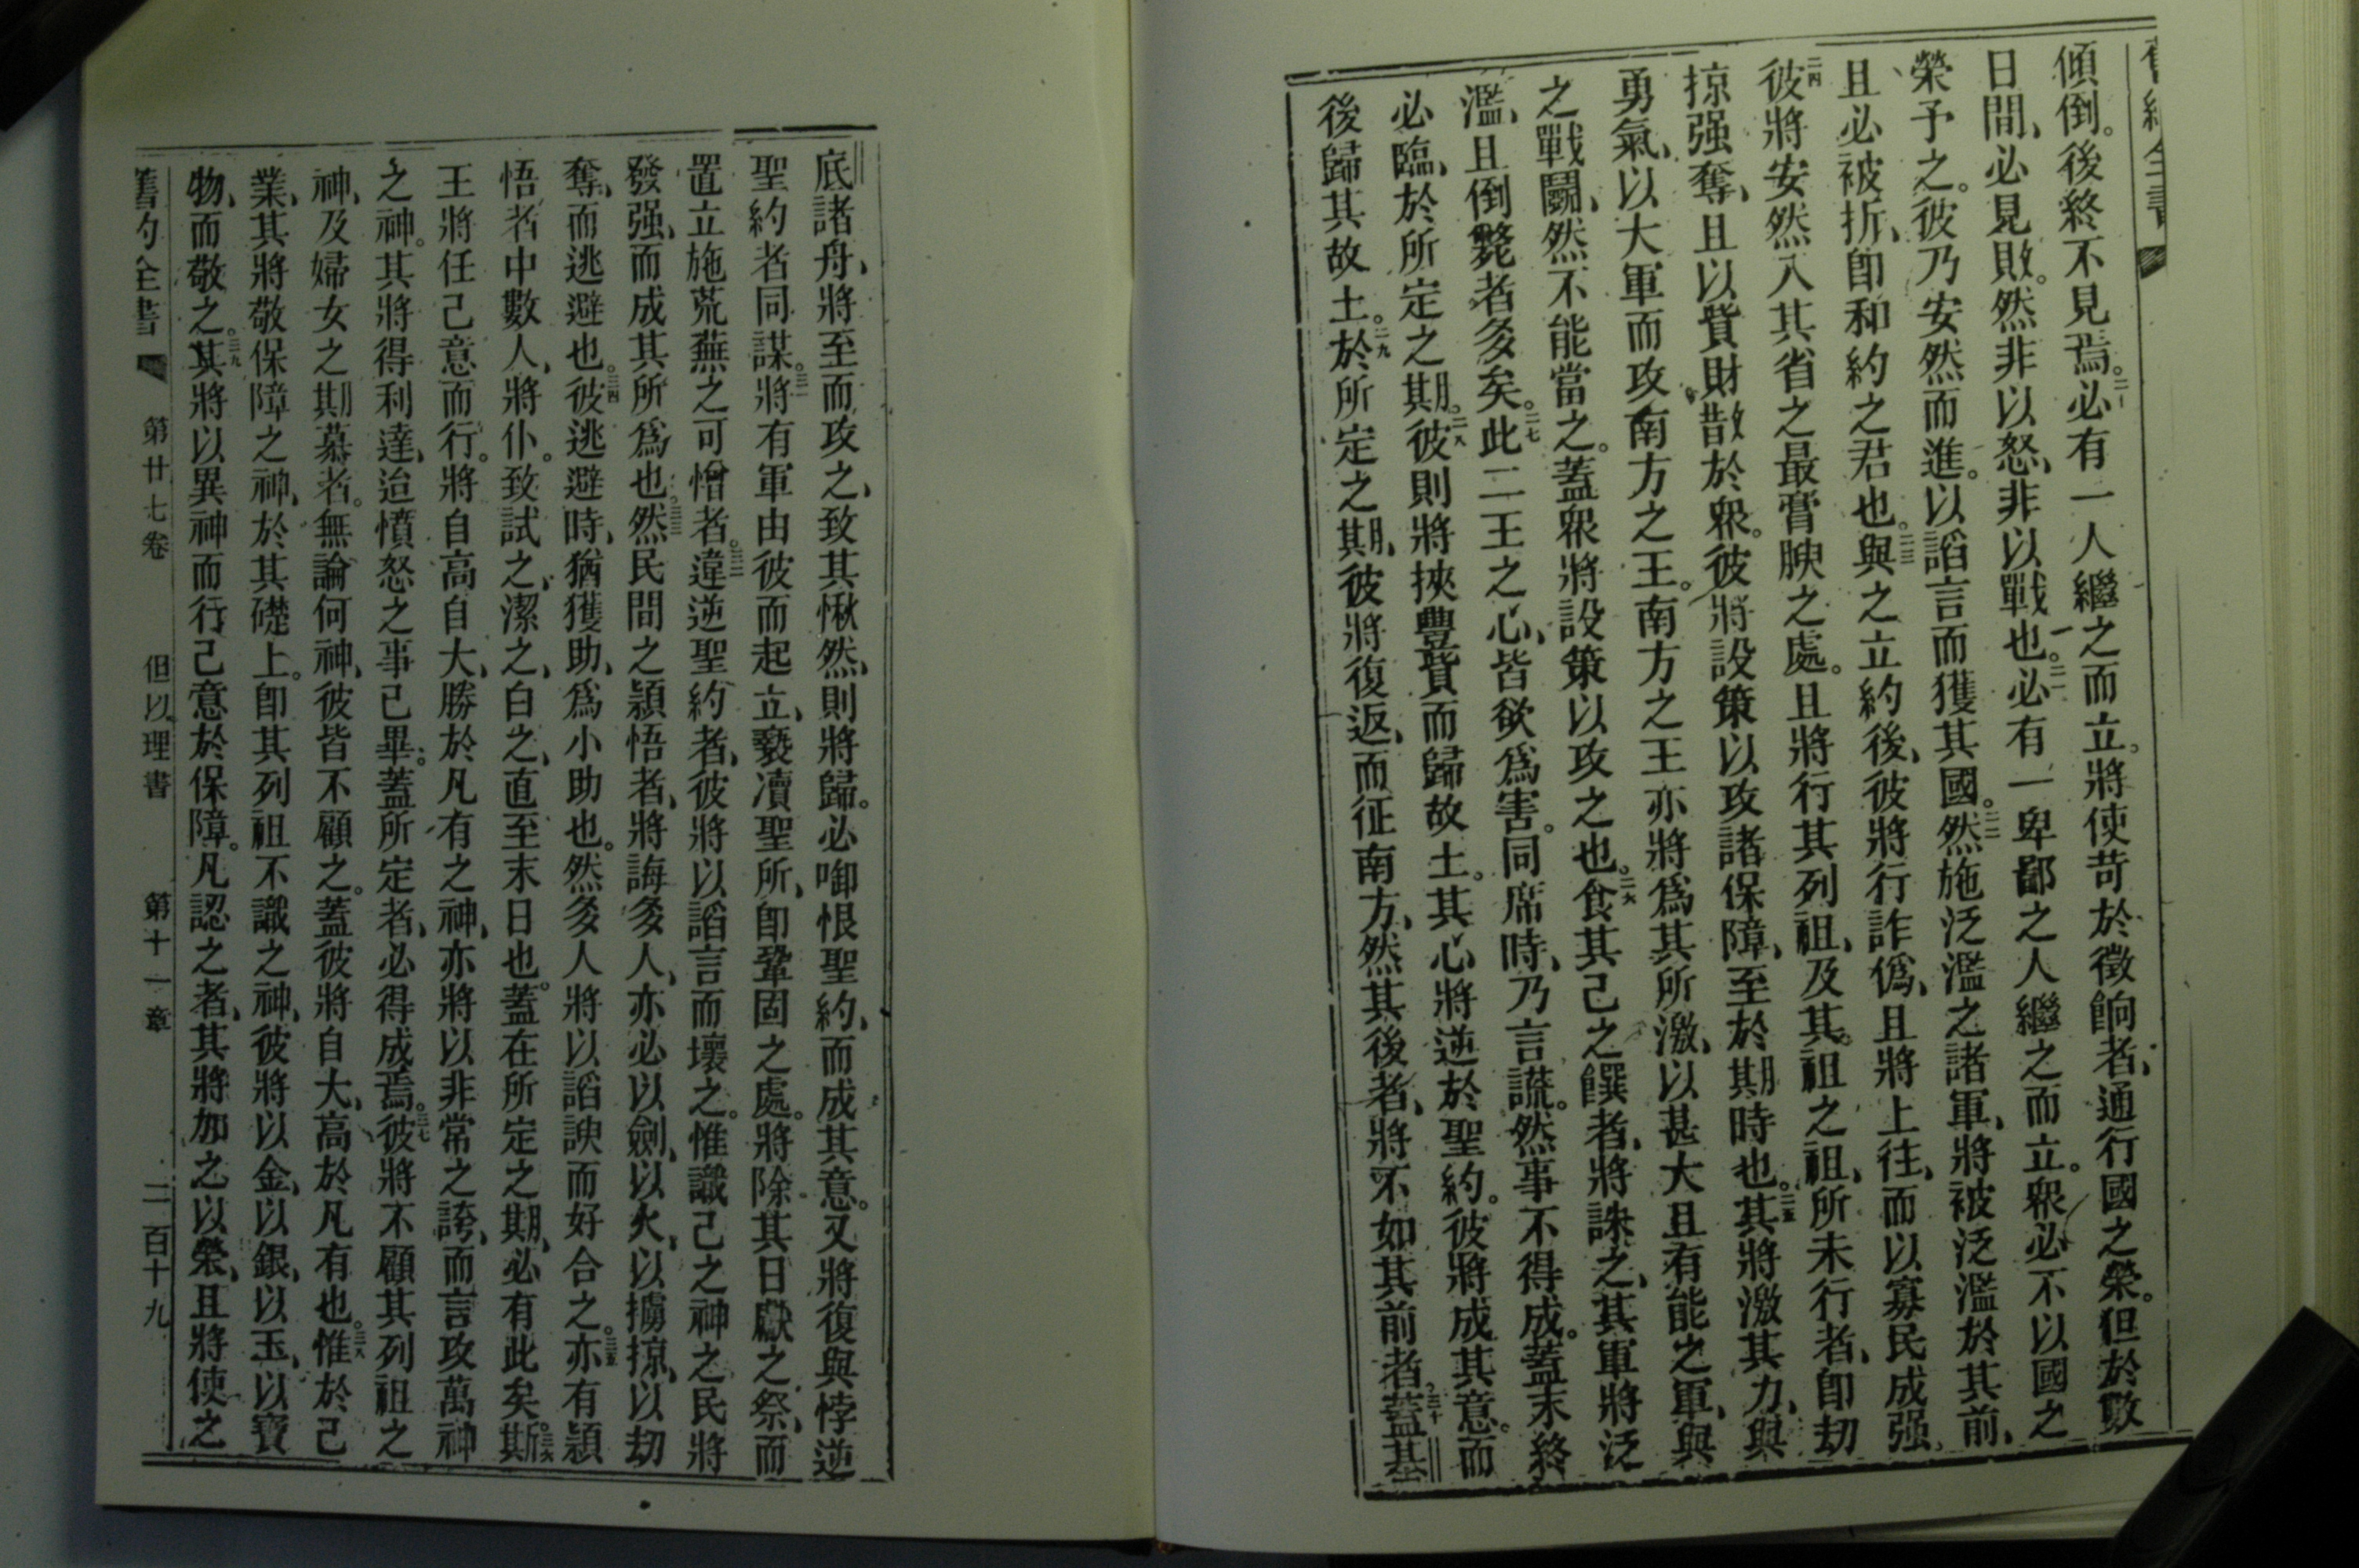 舊約全書
傾倒。後終不見焉。二十必有一人繼之而立。將使苛於徵餉者、通行國之榮。但於數
日間、必見敗。然非以怒、非以戰也。二一必有一卑鄙之人繼之而立。衆必不以國之
榮予之。彼乃安然而進。以諂言而獲其國。二二然施泛濫之諸軍、將被泛濫於其前、
且必被折、卽和約之君也。二三與之立約後、彼將行詐僞、且將上往、而以寡民成强。
二四彼將安然入其省之最膏腴之處。且將行其列祖、及其祖之祖、所未行者、卽劫
掠强奪、且以貲財散於衆。彼將設策以攻諸保障、至於期時也。二五其將激其力、與
勇氣、以大軍而攻南方之王。南方之王亦將爲其所激、以甚大且有能之軍、與
之戰鬬、然不能當之。蓋衆將設策以攻之也。二六食其己之饌者、將誅之、其軍將泛
濫、且倒斃者多矣。二七此二王之心、皆欲爲害。同席時、乃言謊。然事不得成。蓋末終
必臨、於所定之期。二八彼則將挾豐貲而歸故土。其心將逆於聖約。彼將成其意。而
後歸其故土。二九於所定之期、彼將復返、而征南方、然其後者、將不如其前者。三十蓋基
底諸舟、將至而攻之、致其愀然、則將歸。必啣恨聖約、而成其意。又將復與悖逆
聖約者同謀。三一將有軍由彼而起立、褻瀆聖所、卽鞏固之處。將除其日獻之祭、而
置立施荒蕪之可憎者。三二違逆聖約者、彼將以諂言而壞之。惟識己之神之民將
發强、而成其所爲也。三三然民間之穎悟者、將誨多人、亦必以劍、以火、以擄掠、以劫
奪、而逃避也。三四彼逃避時、猶獲助、爲小助也。然多人將以諂諛而好合之。三五亦有穎
悟者中數人、將仆。致試之、潔之、白之、直至末日也。蓋在所定之期、必有此矣。三六斯
王將任己意而行。將自高自大、勝於凡有之神、亦將以非常之誇、而言攻萬神
之神。其將得利達、迨憤怒之事已畢。蓋所定者、必得成焉。三七彼將不顧其列祖之
神、及婦女之期慕者。無論何神、彼皆不顧之。蓋彼將自大、高於凡有也。三八惟於己
業、其將敬保障之神、於其礎上。卽其列祖不識之神、彼將以金、以銀、以玉、以寶
物、而敬之。三九其將以異神而行己意於保障。凡認之者、其將加之以榮、且將使之
舊約全書 第廿七卷 但以理書 第十一章 二百十九